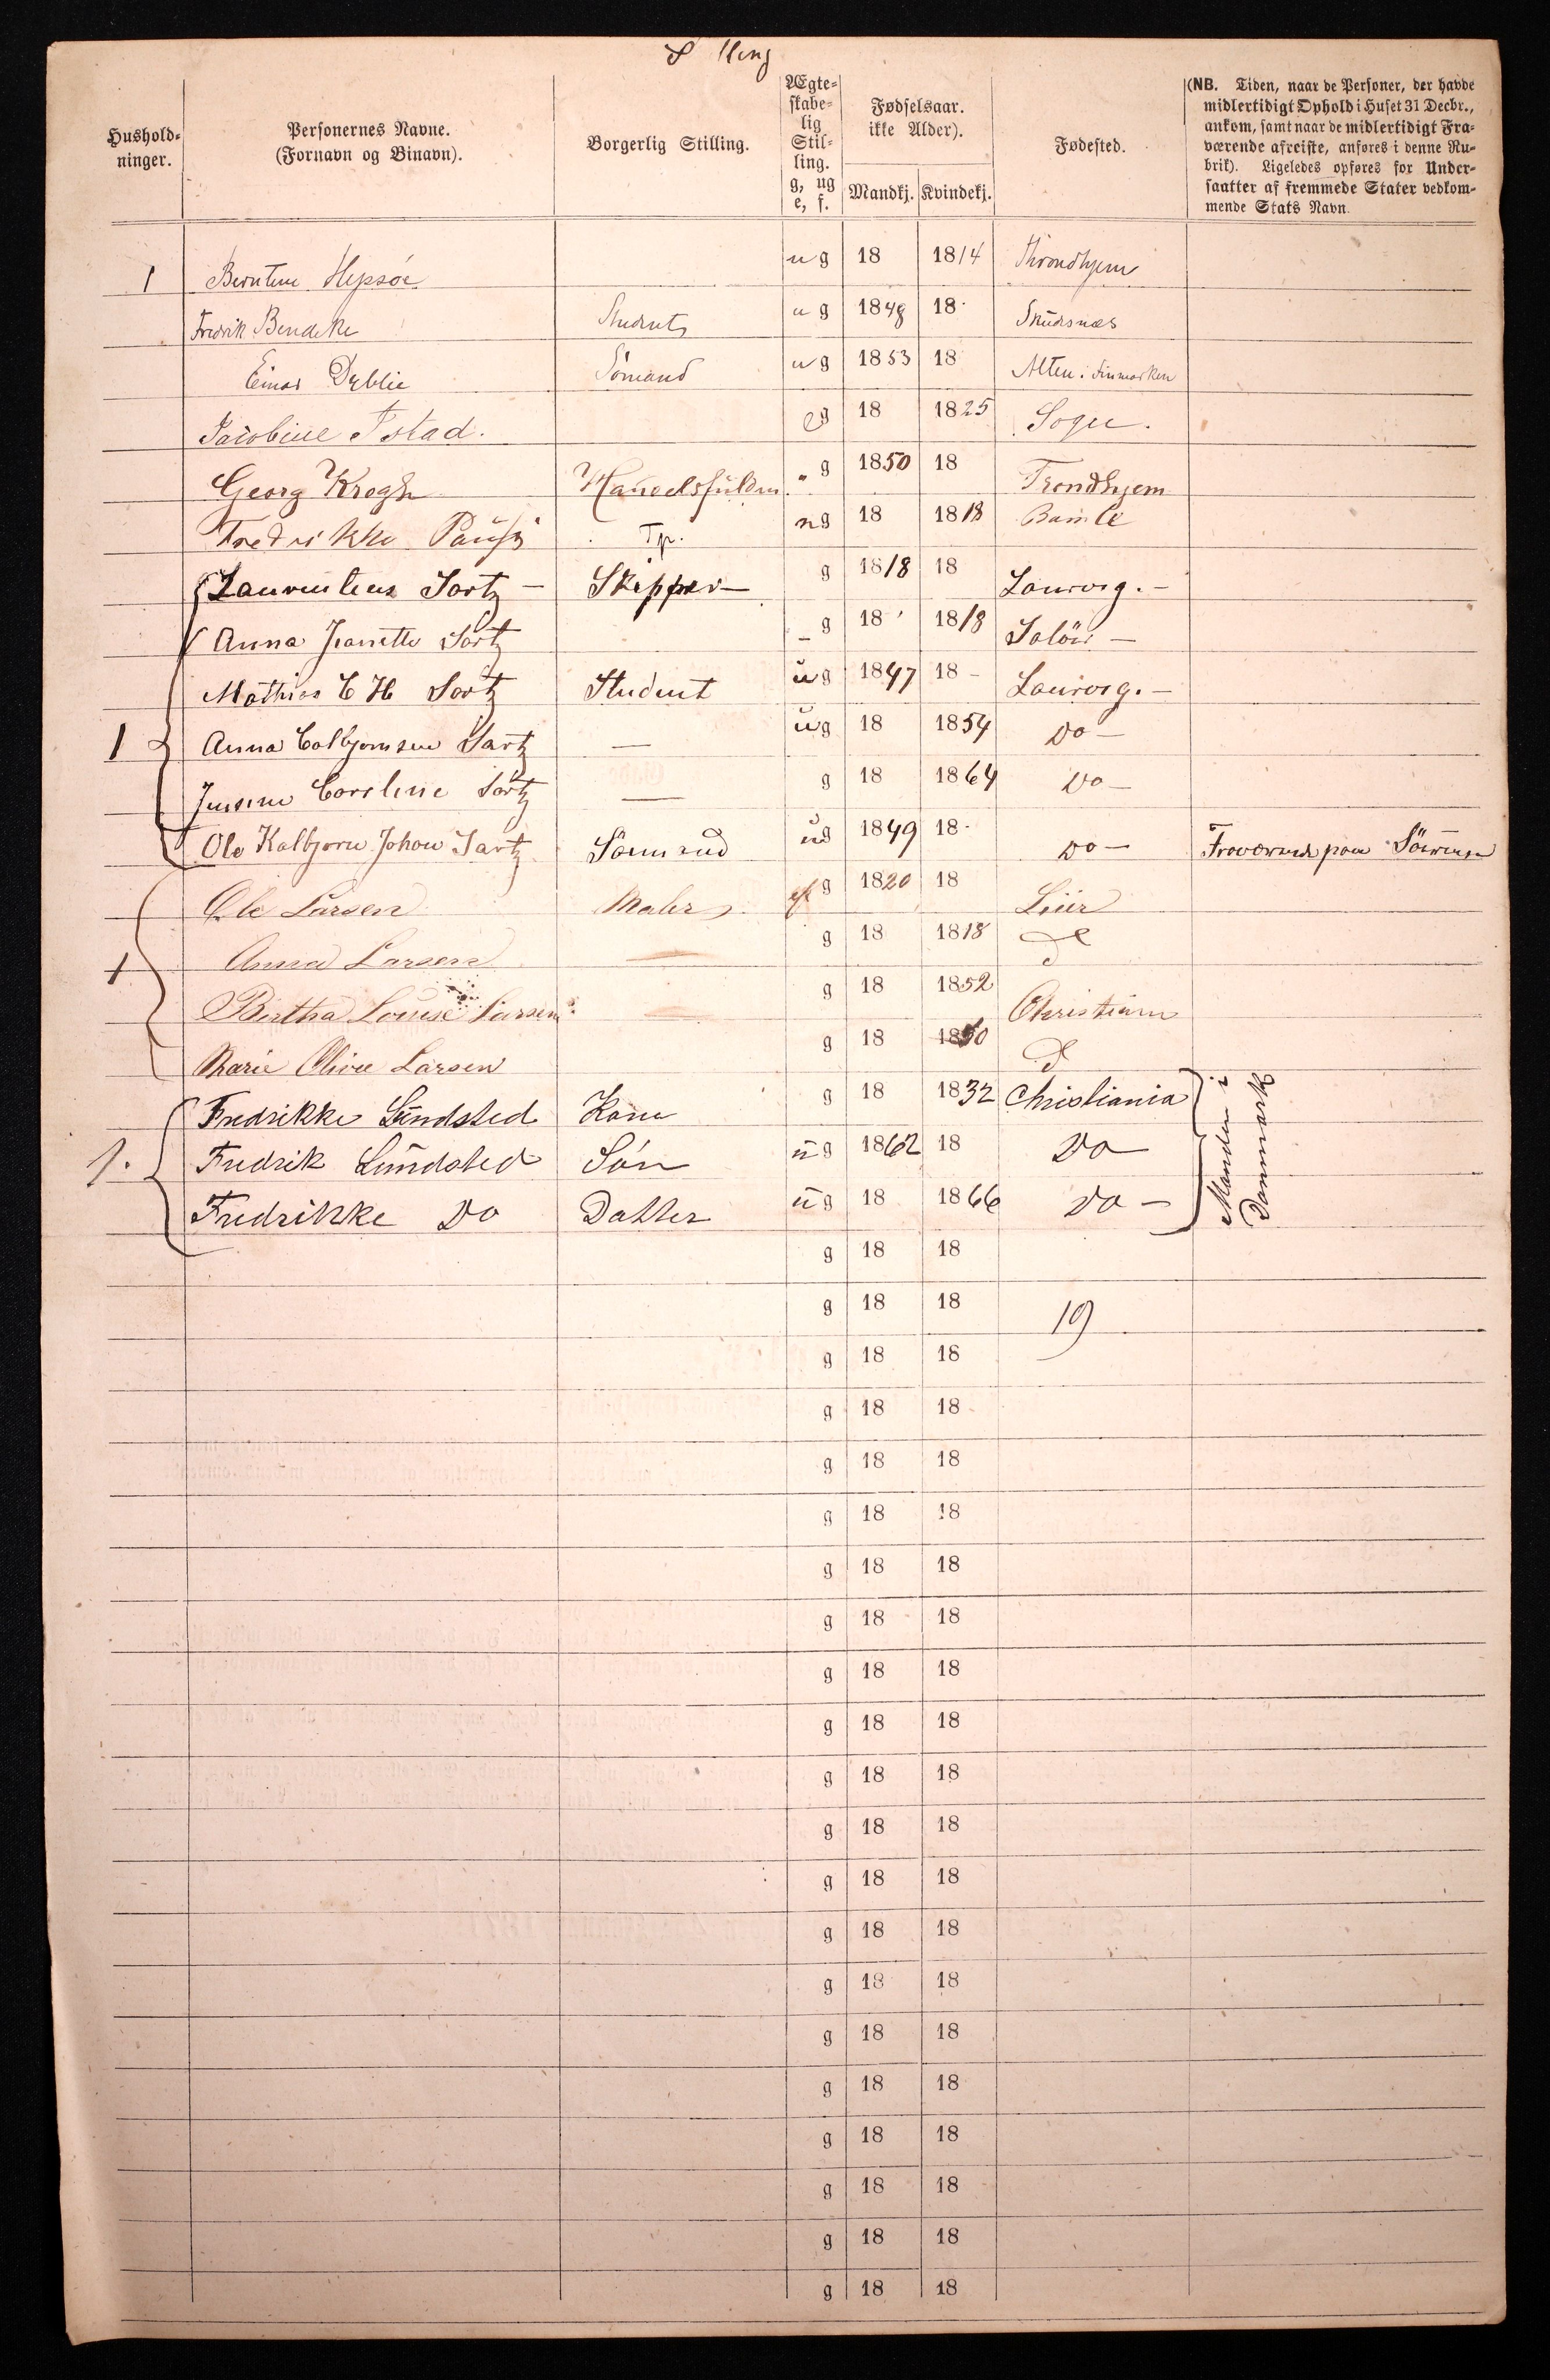 Hushold-
ninger.
Personernes Navne.
(Fornavn og Binavn).
Borgerlig Stilling.
Ægte-
skabe-
lig
Stil-
ling.
g, ug
e, f.
Fødselsaar.
ikke Alder).
Mandkj. Kvindekj.
Fødested.
(NB. Tiden, naar de Personer, der havde
midlertidigt Ophold i Huset 31 Decbr.,
ankom, samt naar de midlertidigt Fra-
værende afreiste, anføres i denne Ru-
brik). Ligeledes opføres for Under-
saatter af fremmede Stater vedkom-
mende Stats Navn.
1 Berntine Hepsøe ug 18 1814 Throndhjem
Fredrik Bendeke Student ug 1848 18 Skudsnæs
Einar Dyblie Sömand ug 1853 18 Alten i Finmarken
Jacobine Fstad. eg 18 1825 Sogn.
Georg Krogh " g 1850 18 Trondhjem
Fredrikke Paus Tp. ug 18 1818 Bamle
Laurentius Sartz – Skipper – g 1818 18 Laurvig. –
Anna Jeanette Sartz g 18 1818 Solöer –
Mathias C H Sartz Student ug 1847 18 – Laurvig. –
1 Anna Colbjørnsen Sartz — ug 18 1854 Do –
Caroline Sartz — g 18 1864 Do –
Ole Kolbjørn Johan Sartz Sömand ug 1849 18 Do – Fraværende paa
Ole Larsen Maler g 1820 18 Liier
1 Anna Larsen — g 18 1818 d
Bertha Louise Larsen — g 18 1852 Christiania
Marie Olive Larsen g 18 1850 d
Fredrikke Lündsted Kone g 18 1832 Christiania
1. Fredrik Lündsted Sön ug 1862 18 Do
Fredrikke Do Datter ug 18 1866 Do –
Manden i
Danmark
g 18 18
g 18 18 19
g 18 18
g 18 18
g 18 18
g 18 18
g 18 18
g 18 18
g 18 18
g 18 18
g 18 18
g 18 18
g 18 18
g 18 18
g 18 18
g 18 18
g 18 18
g 18 18
g 18 18
g 18 18
g 18 18